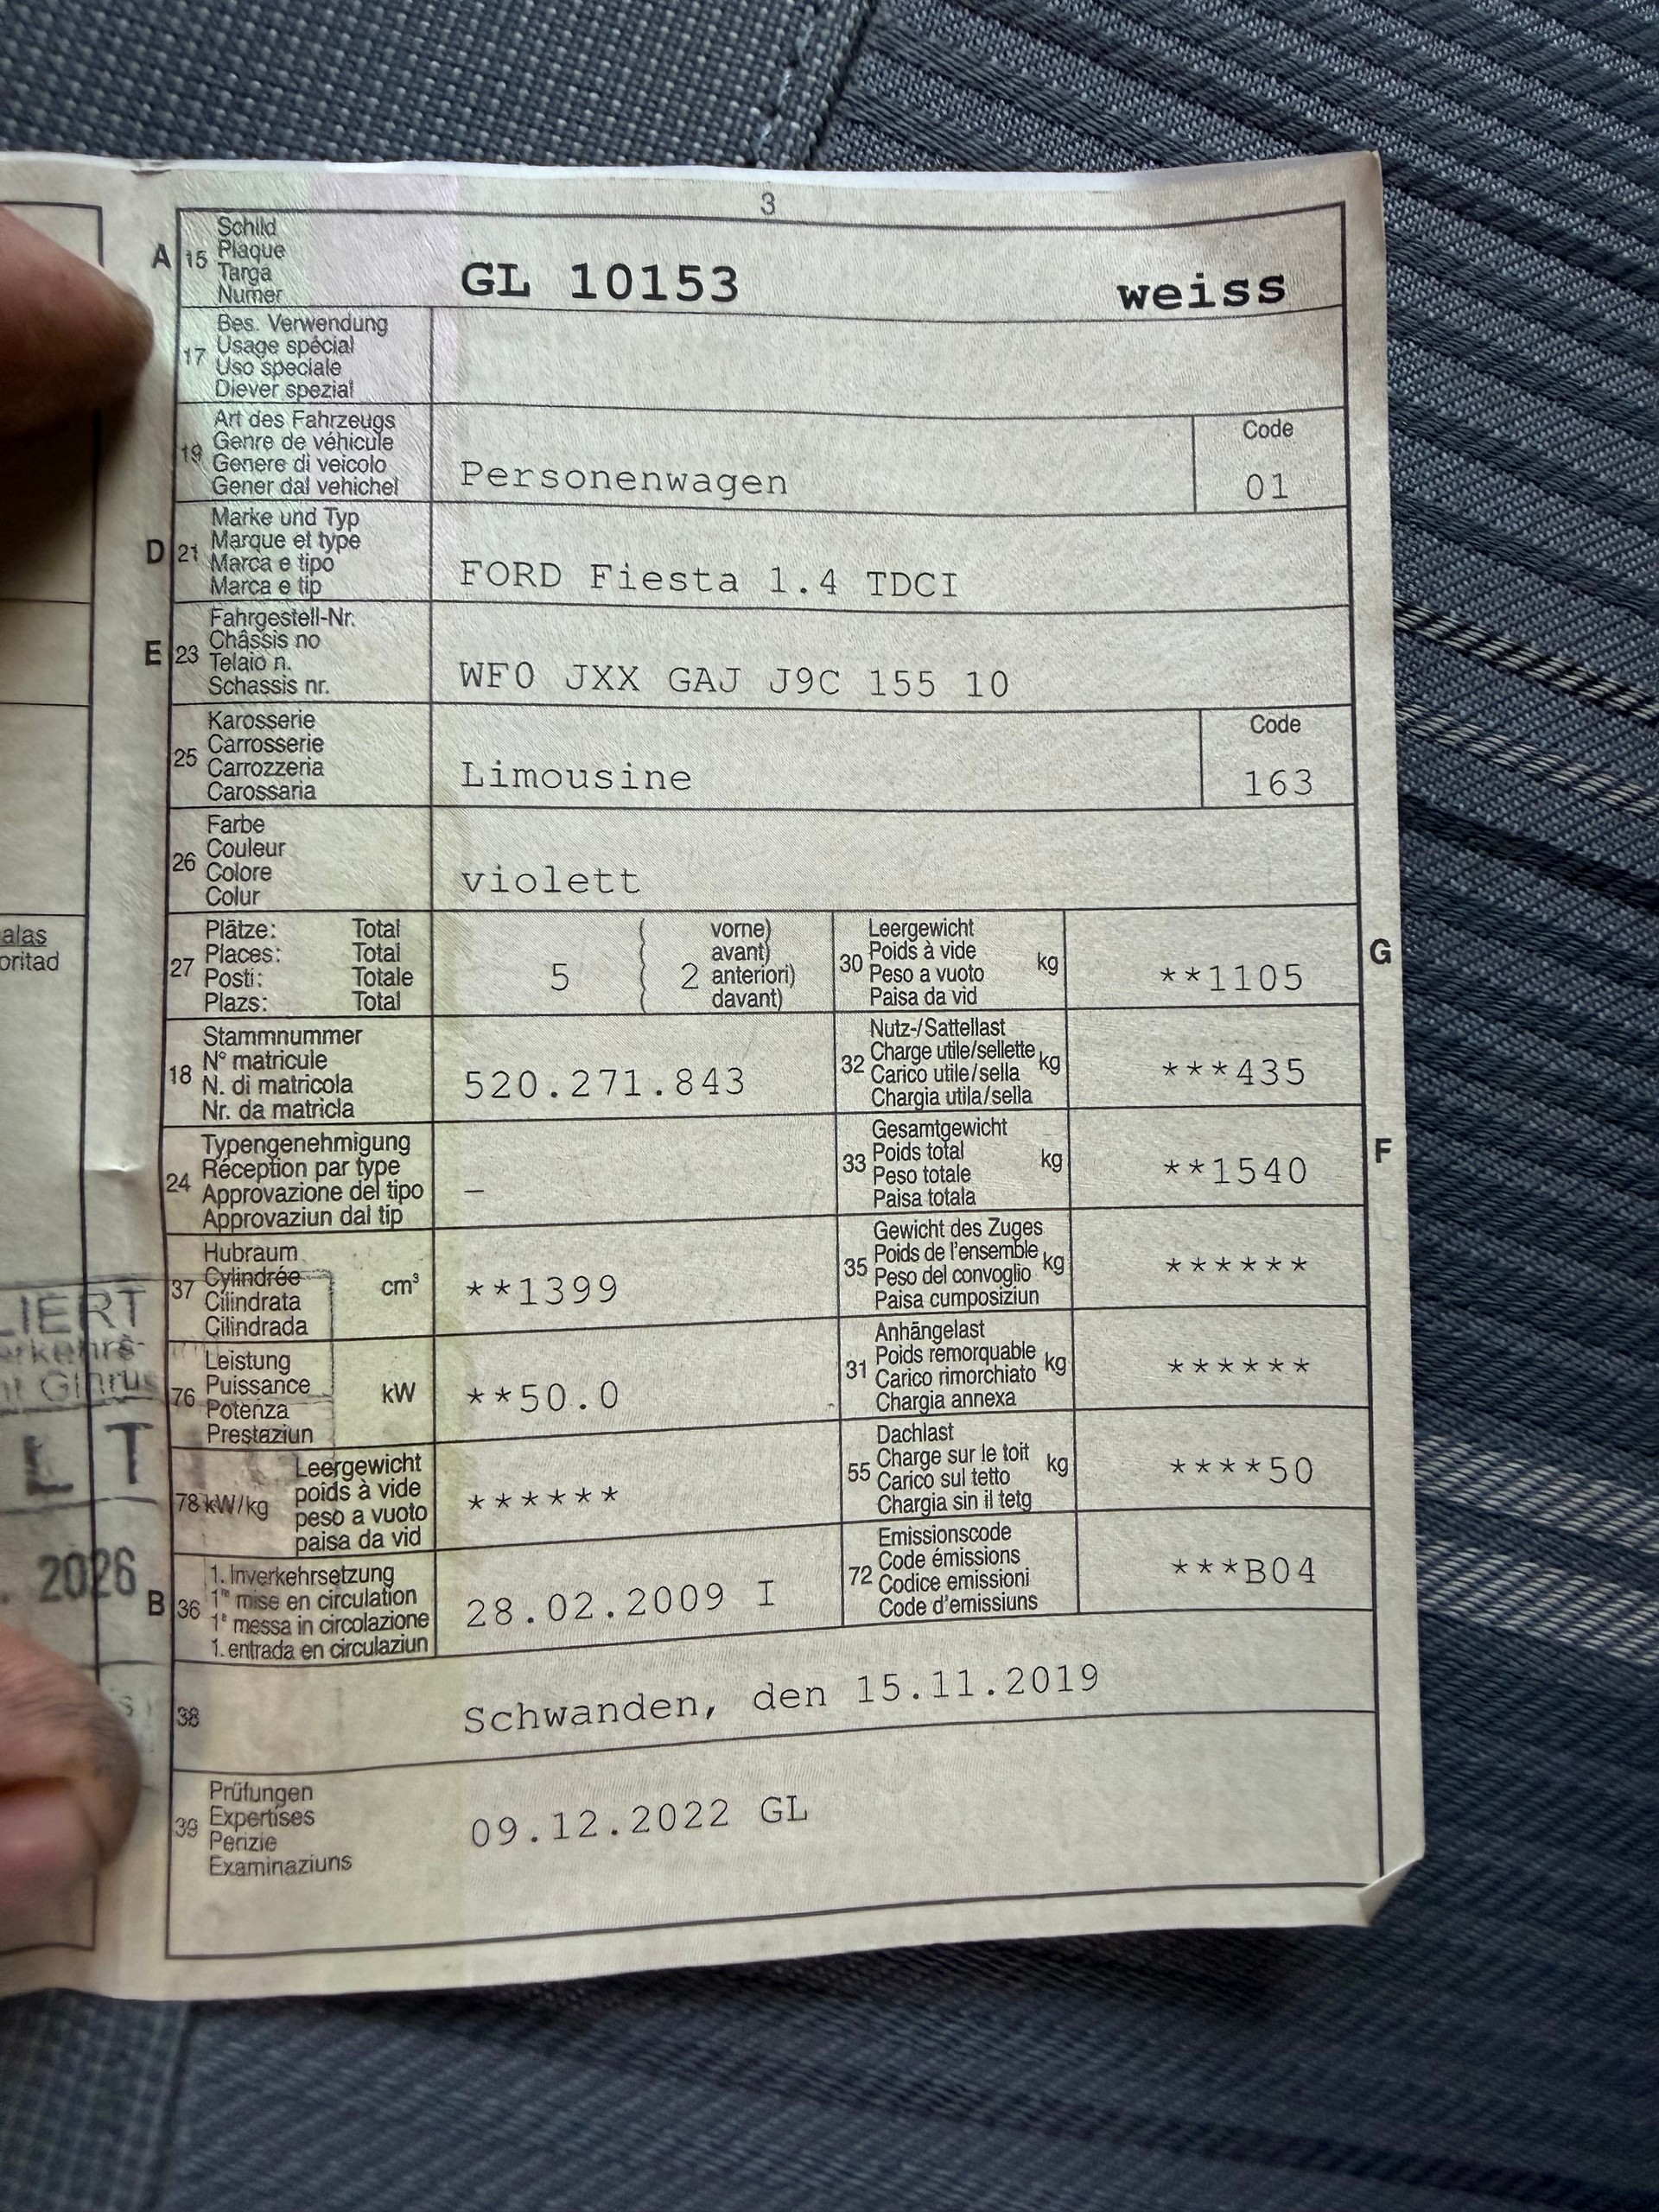 3
A 15 Schild
Plaque
Targa
Numer
GL 10153 weiss
17 Bes. Verwendung
Usage spécial
Uso speciale
Diever spezial
19 Art des Fahrzeugs
Genre de véhicule
Genere di veicolo
Gener dal vehichel
Personenwagen
Code
01
D 21 Marke und Typ
Marque et type
Marca e tipo
Marca e tip
FORD Fiesta 1.4 TDCI
E 23 Fahrgestell-Nr.
Châssis no
Telaio n.
Schassis nr.
WF0 JXX GAJ J9C 155 10
25 Karosserie
Carrosserie
Carrozzeria
Carossaria
Limousine
Code
163
26 Farbe
Couleur
Colore
Colur
violett
27 Plätze: Total
Places: Total
Posti: Totale
Plazs: Total
5 ( 2 vorne)
avant)
anteriori)
davant)
30 Leergewicht
Poids à vide
Peso a vuoto
Paisa da vid
kg
**1105
G
18 Stammnummer
N° matricule
N. di matricola
Nr. da matricla
520.271.843
32 Nutz-/Sattellast
Charge utile/sellette
Carico utile/sella
Chargia utila/sella
kg
***435
24 Typengenehmigung
Réception par type
Approvazione del tipo
Approvaziun dal tip
–
33 Gesamtgewicht
Poids total
Peso totale
Paisa totala
kg
**1540
F
37 Hubraum
Cylindrée
Cilindrata
Cilindrada
cm³
**1399
35 Gewicht des Zuges
Poids de l'ensemble
Peso del convoglio
Paisa cumposiziun
kg
******
76 Leistung
Puissance
Potenza
Prestaziun
kW
**50.0
31 Anhängelast
Poids remorquable
Carico rimorchiato
Chargia annexa
kg
******
78 kW/kg Leergewicht
poids à vide
peso a vuoto
paisa da vid
******
55 Dachlast
Charge sur le toit
Carico sul tetto
Chargia sin il tetg
kg
****50
B 36 1. Inverkehrsetzung
1re mise en circulation
1a messa in circolazione
1. entrada en circulaziun
28.02.2009 I
72 Emissionscode
Code émissions
Codice emissioni
Code d'emissiuns
***B04
38 Schwanden, den 15.11.2019
39 Prüfungen
Expertises
Perizie
Examinaziuns
09.12.2022 GL
alas
oritad
LIERT
erkehrs-
Glarus
LT
. 2026